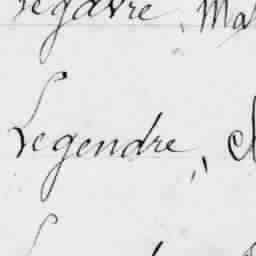 Legavre, Ma
Legendre,